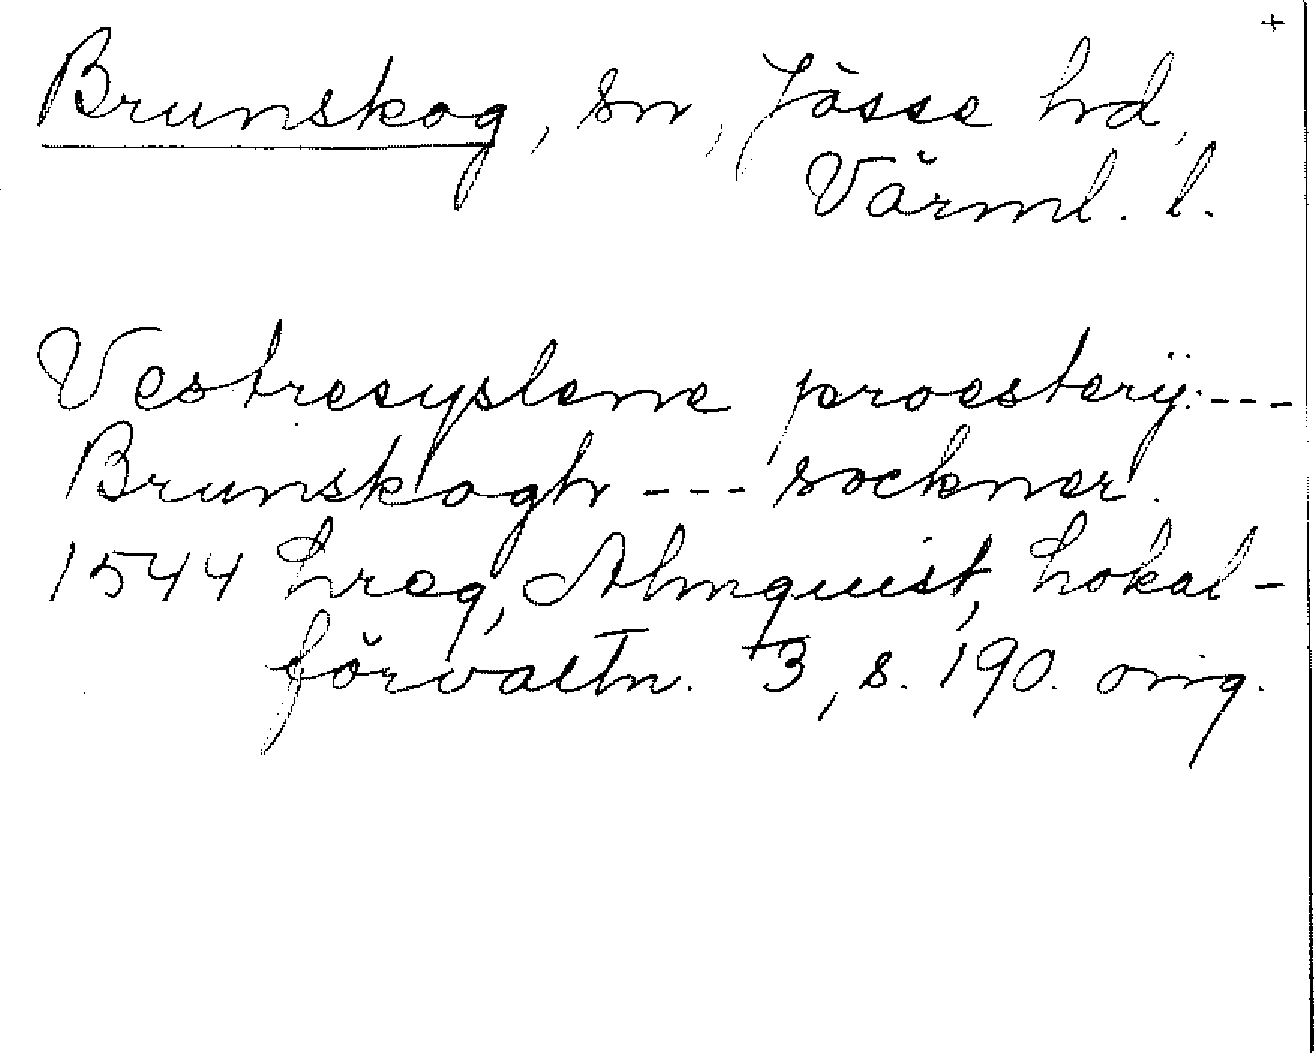 +
Brunskog, sn, Jösse hd,
Värml. l.
Vestresyslene proesterij:---
Brunskogh --- sockner.
1544 Lreg, Almquist, Lokal-
förvaltn. 3, s. 190. orig.